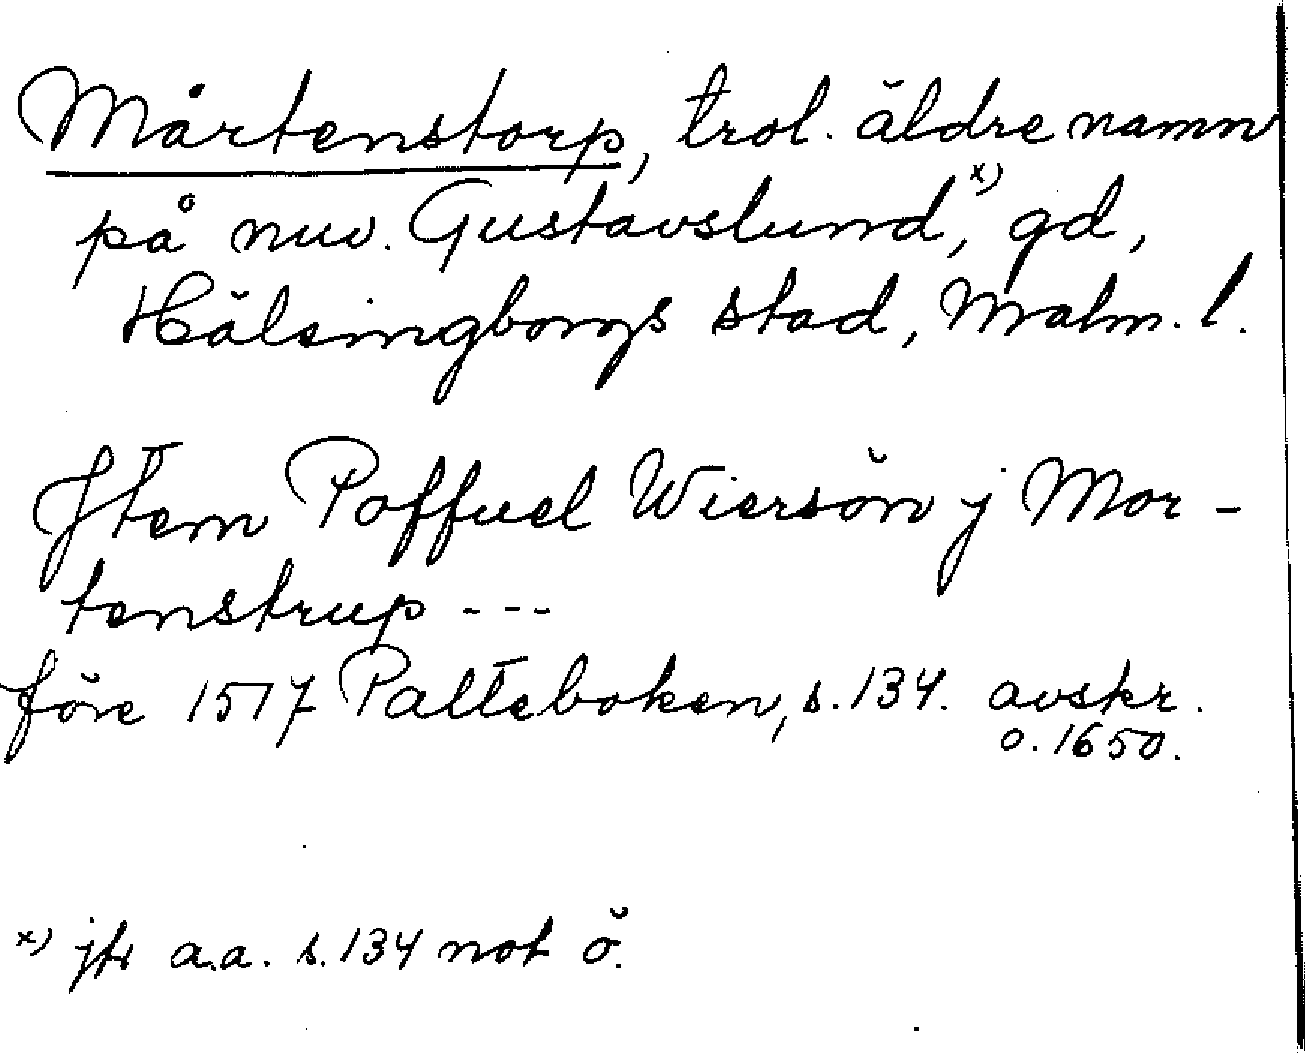 Mårtenstorp, trol. äldre namn
på nuv. Gustavslund,x) gd,
Hälsingborgs stad, Malm. l.
Jtem Poffuel Wiersön j Mor-
tenstrup ---
före 1517 Palteboken, s. 134. avskr.
o. 1650.
x) jfr a.a. s. 134 not ö.